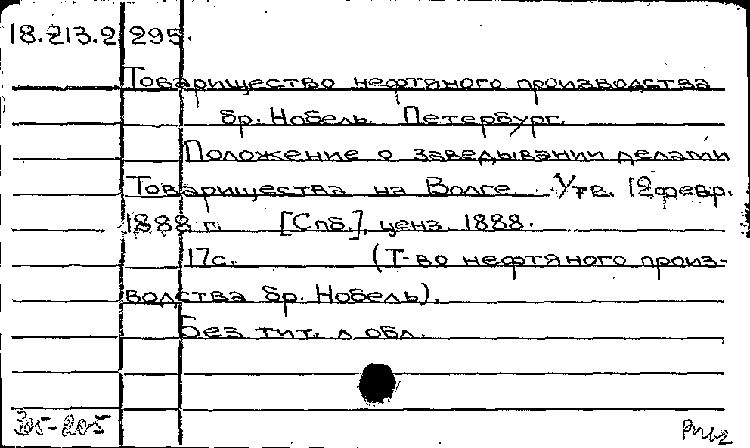 18.213.2 295.
Товарищество нефтяного производства
бр. Нобель. Петербург.
Положение о заведывании делами
Товарищества на Волге. Утв. 12 февр.
1888 г. [Спб.], ценз. 1888.
17с. (Т-во нефтяного произ-
водства бр. Нобель).
Без тит. л. обл.
305-205